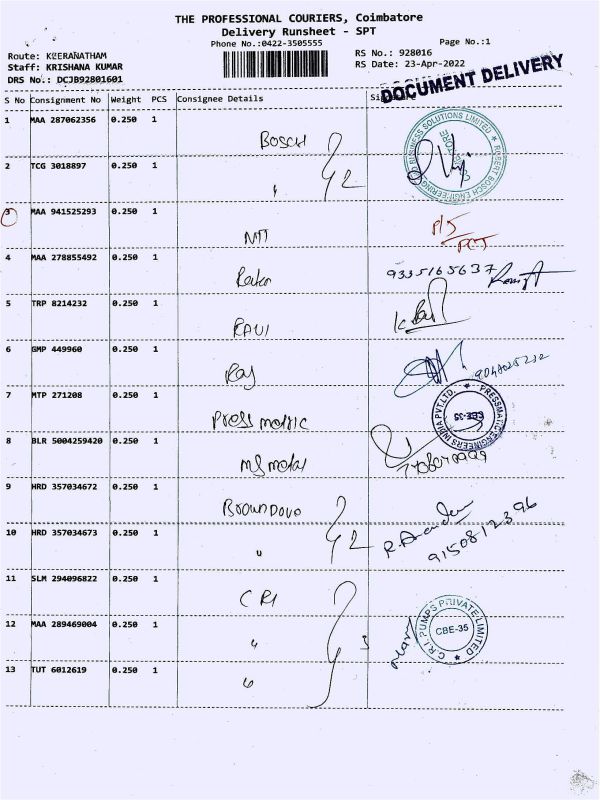 THE PROFESSIONAL COURIERS, Coimbatore
Delivery Runsheet - SPT
Phone No.:0422-3505555
Page No.:1
Route: KEERANATHAM
RS No.: 928016
Staff: KRISHANA KUMAR
RS Date: 23-Apr-2022
DRS No.: DCJB92801601
DOCUMENT DELIVERY
S No Consignment No Weight PCS Consignee Details
1 MAA 287062356 0.250 1 BOSCH
ROBERT BOSCH ENGINEERING BUSINESS SOLUTIONS LIMITED
2 TCG 3018897 0.250 1 " 2
3 MAA 941525293 0.250 1 NTT
4 MAA 278855492 0.250 1 9335165637
5 TRP 8214232 0.250 1 RAVI
6 GMP 449960 0.250 1 Raj
7 MTP 271208 0.250 1 Press matric
PRESSMATIC ENGINEERS INDIA PVT.LTD. CBE-35
8 BLR 5004259420 0.250 1 MS metal
9 HRD 357034672 0.250 1
10 HRD 357034673 0.250 1 " 2
9150812396
11 SLM 294096822 0.250 1 CRI
12 MAA 289469004 0.250 1 " 3
C.R.I. PUMPS PRIVATE LIMITED CBE-35
13 TUT 6012619 0.250 1 "